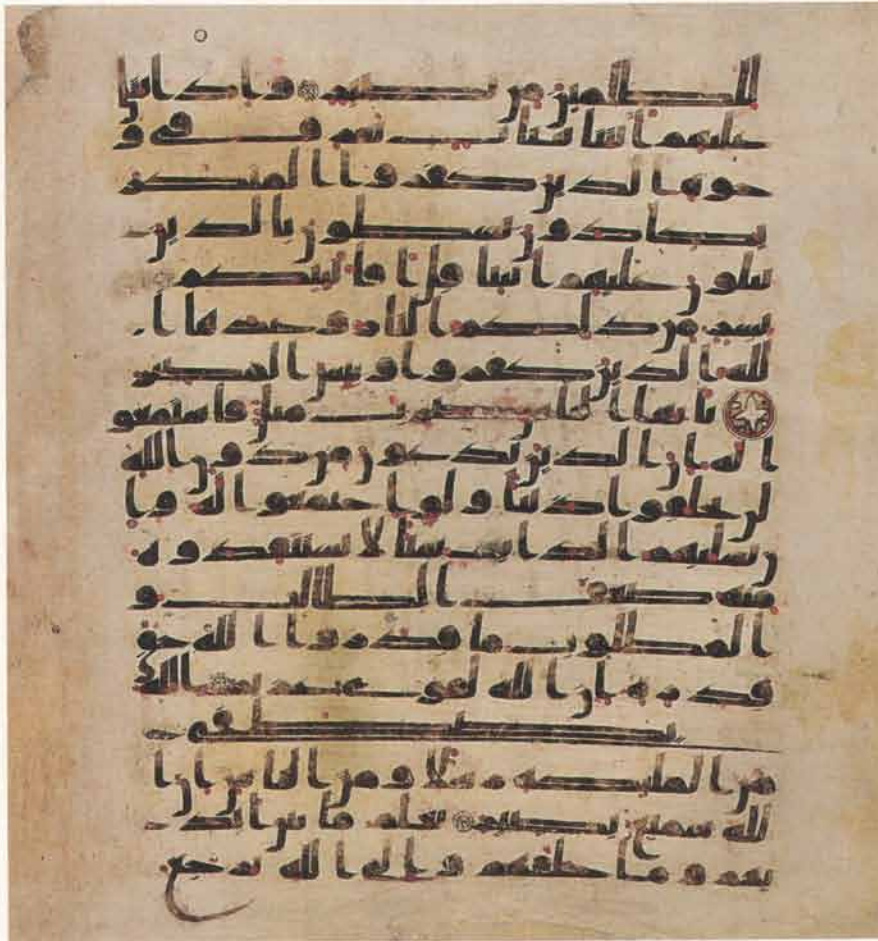 للظلمين من نصير واذا تتلى
عليهم ايتنا بينت تعرف في و
جوه الذين كفروا المنكر
يكادون يسطون بالذين
يتلون عليهم ايتنا قل افانبئكم
بشر من ذلكم النار وعدها ا
لله الذين كفروا وبئس المصير
يايها الناس ضرب مثل فاستمعو
ا له ان الذين تدعون من دون الله
لن يخلقوا ذبابا ولو اجتمعوا له وا
ن يسلبهم الذباب شيئا لا يستنقذوه
منه ضعف الطالب و
المطلوب ما قدروا الله حق
قدره ان الله لقوي عزيز الله
يصطفي
من الملئكة رسلا ومن الناس ان ا
لله سميع بصير يعلم ما بين ايد
يهم وما خلفهم والى الله ترجع